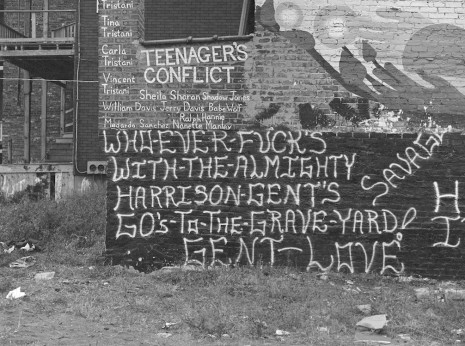 Tristani
Tina
Tristani
Carla
Tristani
Vincent
Tristani
TEENAGER'S
CONFLICT
Sheila Sharan Shadow Jones
William Davis Jerry Davis Babe Wolf
Ralph Hannie
Medardo Sanchez Nanette Manley
WHO-EVER-FUCK'S
WITH-THE-ALMIGHTY
HARRISON-GENT'S
GO'S-TO-THE-GRAVE-YARD!
GENT-LOVE
SAVAGE
H
I